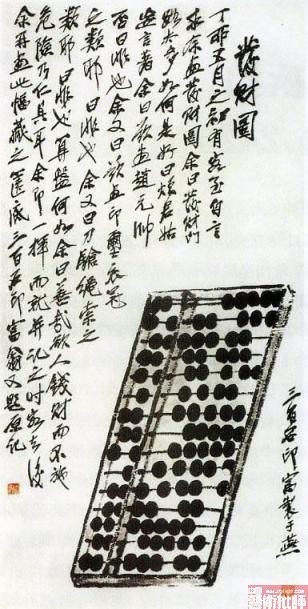 發財圖
丁卯五月之初有客至自言
求余畫發財圖余曰發財門
路太多如何是好曰煩君姑
妄言著余曰欲畫趙元帥
否曰非也余又曰欲畫印璽衣冠
之類耶曰非也余又曰刀槍繩索之
類耶曰非也算盤何如余曰善哉欲人錢財而不施
危險乃仁具耳余即一揮而就并記之時客去後
余再畫此幅藏之篋底三百石印富翁又題原記
三百石印富製于燕